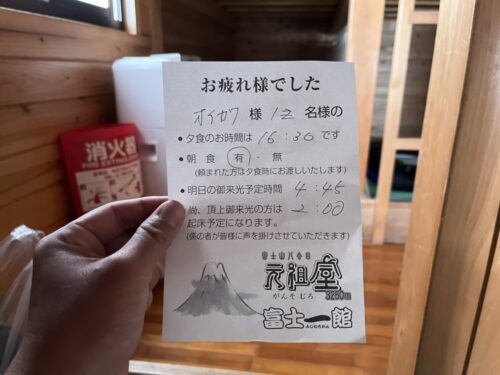 お疲れ様でした
オイカワ 様 12 名様の
●夕食のお時間は 16:30 です
●朝 食 有・無
(頼まれた方は夕食時にお渡しいたします)
●明日の御来光予定時間 4:45
尚、頂上御来光の方は 2:00
起床予定になります。
(係の者が皆様に声を掛けさせていただきます)
富士山八合目
元祖室
がんそ むろ
3250m
富士一館
消火器
FIRE EXTINGUISHER